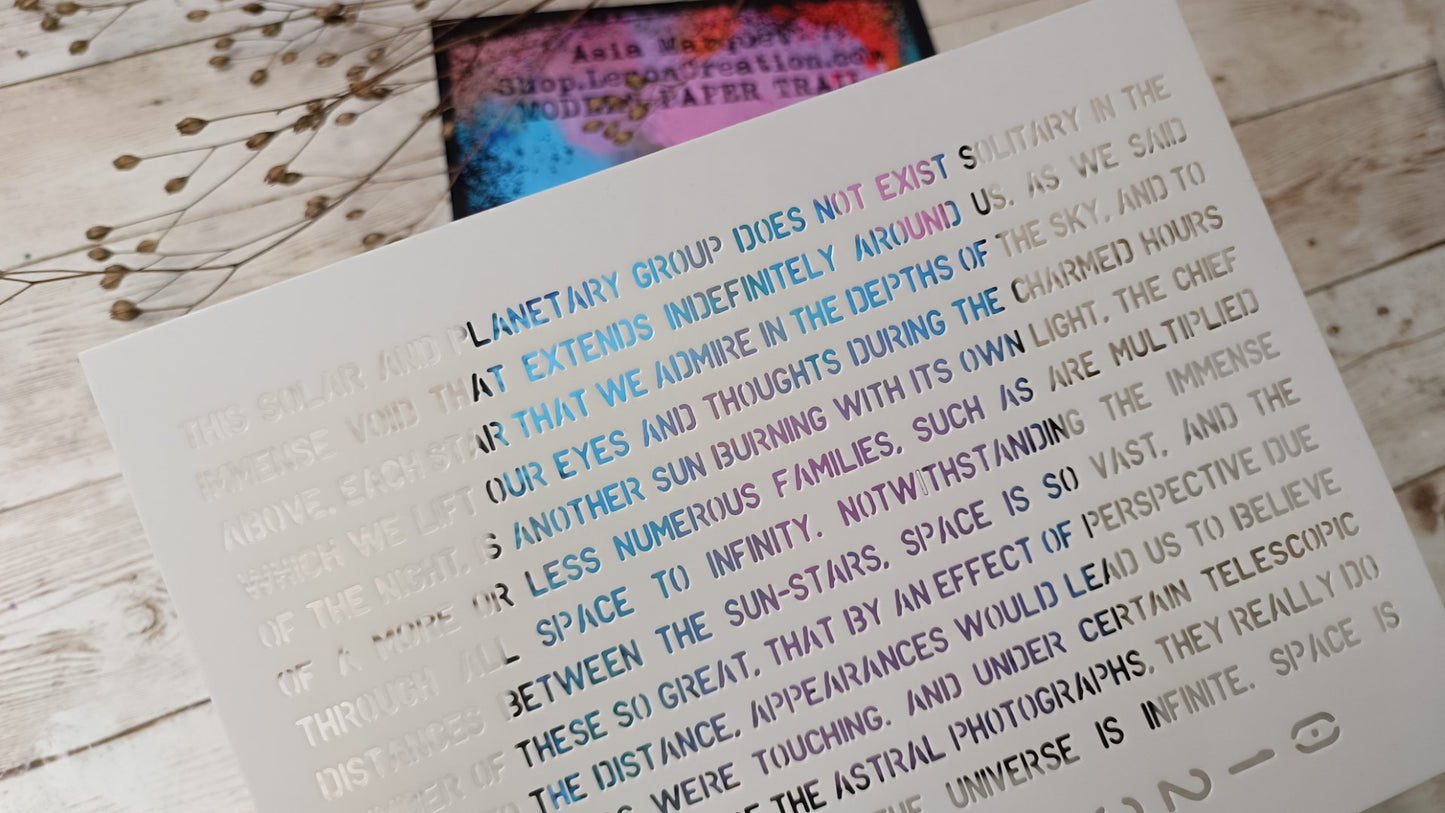 Asia Mar
Shop.LemonCreation.com
MODERN PAPER TRAIL
THIS SOLAR AND PLANETARY GROUP DOES NOT EXIST SOLITARY IN THE
IMMENSE VOID THAT EXTENDS INDEFINITELY AROUND US. AS WE SAID
ABOVE. EACH STAR THAT WE ADMIRE IN THE DEPTHS OF THE SKY, AND TO
WHICH WE LIFT OUR EYES AND THOUGHTS DURING THE CHARMED HOURS
OF THE NIGHT, IS ANOTHER SUN BURNING WITH ITS OWN LIGHT, THE CHIEF
OF A MORE OR LESS NUMEROUS FAMILIES, SUCH AS ARE MULTIPLIED
THROUGH ALL SPACE TO INFINITY. NOTWITHSTANDING THE IMMENSE
DISTANCES BETWEEN THE SUN-STARS, SPACE IS SO VAST, AND THE
NUMBER OF THESE SO GREAT, THAT BY AN EFFECT OF PERSPECTIVE DUE
THE DISTANCE, APPEARANCES WOULD LEAD US TO BELIEVE
WERE TOUCHING. AND UNDER CERTAIN TELESCOPIC
THE ASTRAL PHOTOGRAPHS, THEY REALLY DO
THE UNIVERSE IS INFINITE. SPACE IS
2 1 0